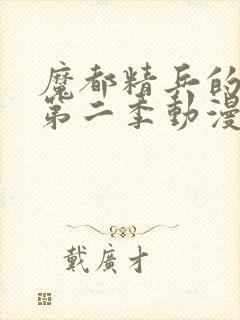 魔都精兵的
第二季動漫
戴廣才